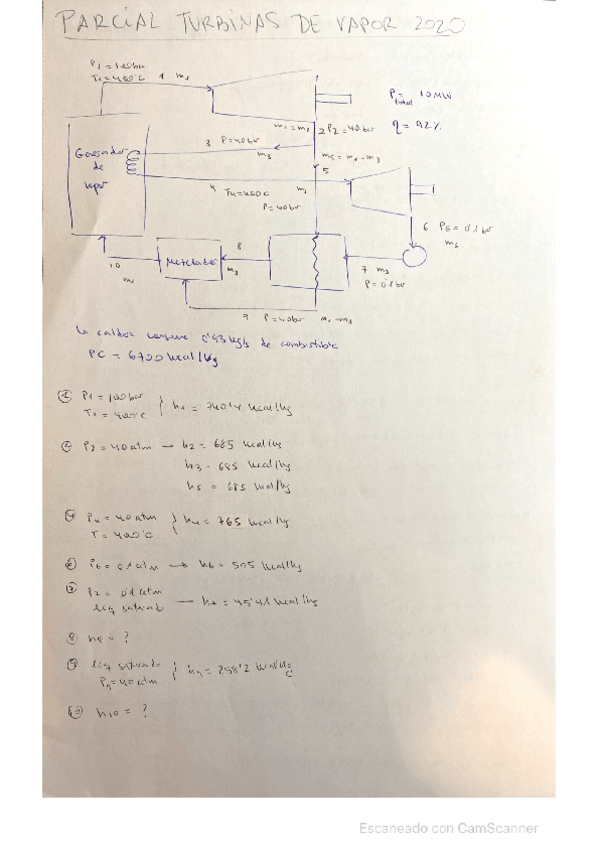 PARCIAL TURBINAS DE VAPOR 2020
P1 = 100 bar
T1 = 400°C 1 m1
P total = 10 MW
η = 92%
m1 = m2 2 P2 = 40 bar
3 P = 40 bar
m3
m5 = m1 - m3
5
Generador
de
vapor
4 T4 = 400°C
P = 40 bar
6 P6 = 0'1 bar
m3
Mezclador
8
m3
7 m3
P = 0'1 bar
10
m1
9 P = 40 bar m1 - m3
La caldera consume 0'93 kg/s de combustible
PC = 6700 kcal/kg
① P1 = 100 bar
T1 = 400°C } h1 = 740'4 kcal/kg
② P2 = 40 atm → h2 = 685 kcal/kg
h3 = 685 kcal/kg
h5 = 685 kcal/kg
④ P4 = 40 atm
T = 400°C } h4 = 765 kcal/kg
⑥ P6 = 0'1 atm → h6 = 505 kcal/kg
⑦ P7 = 0'1 atm
liq saturado — h7 = 45'41 kcal/kg
⑧ h8 = ?
⑨ liq saturado
P9 = 40 atm } h9 = 258'2 kcal/kg
⑩ h10 = ?
Escaneado con CamScanner